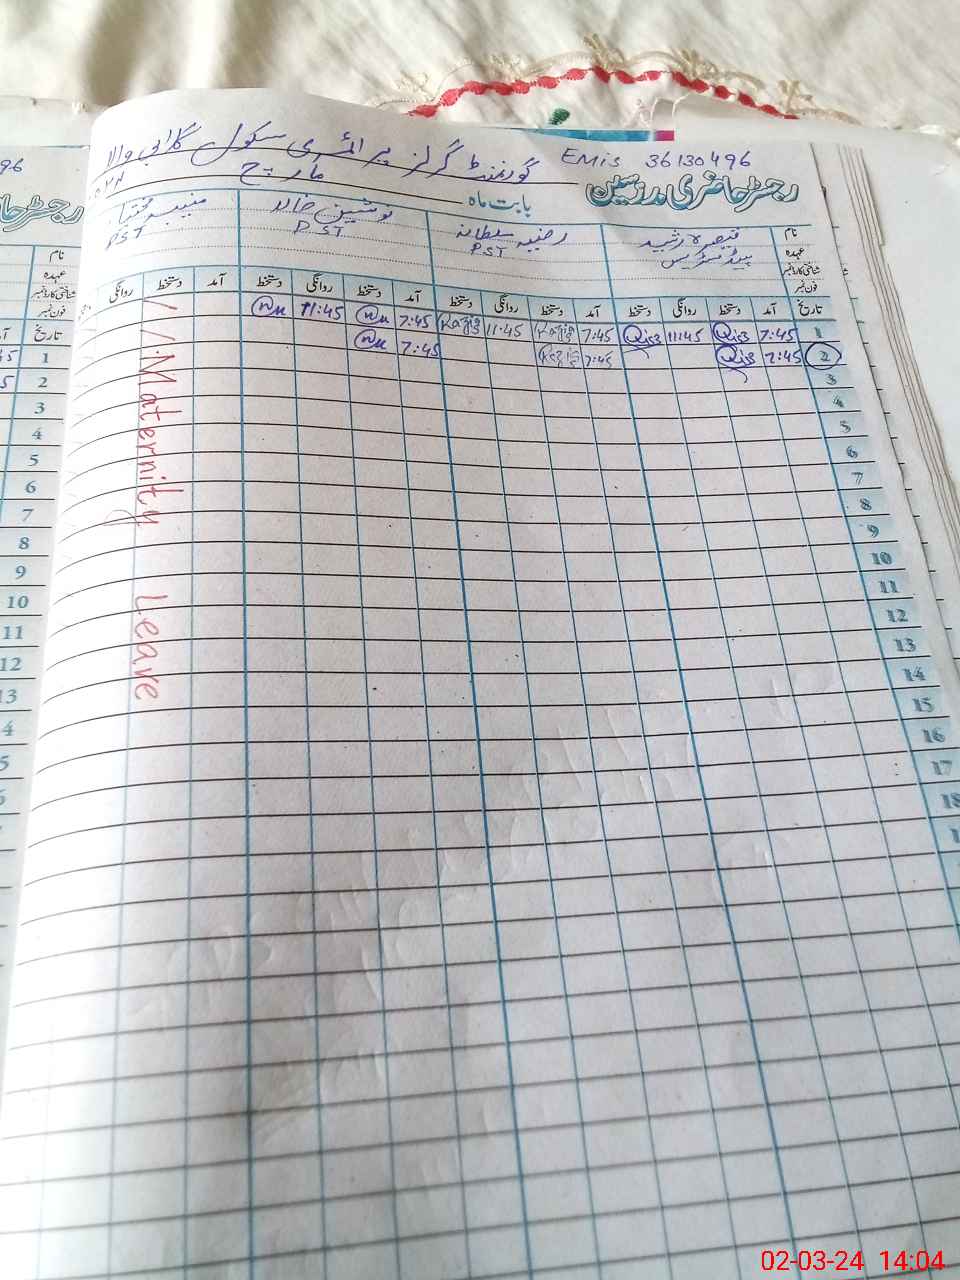 گورنمنٹ گرلز پرائمری سکول گلابی والا EMis 36130496
رجسٹر حاضری مدرسین بابت ماہ مارچ
نام قیصرہ رشید رضیہ سلطانہ نوشین خالد
عہدہ ہیڈمسٹریس PST PST PST
شناختی کارڈ نمبر
فون نمبر
تاریخ آمد دستخط روانگی دستخط آمد دستخط روانگی دستخط آمد دستخط روانگی دستخط آمد دستخط روانگی
1 7:45 Qis3 11:45 Qis3 7:45 Razia 11:45 Razia 7:45 11:45
2 7:45 Qis3 7:45 Razia 7:45
3
4
5
6
7
8
9
10
11
12
13
14
15
16
17
18
Maternity Leave
96
رجسٹر حا
نام
عہدہ
شناختی کارڈ نمبر
فون نمبر
تاریخ
1
2
3
4
5
6
7
8
9
10
11
12
13
02-03-24 14:04